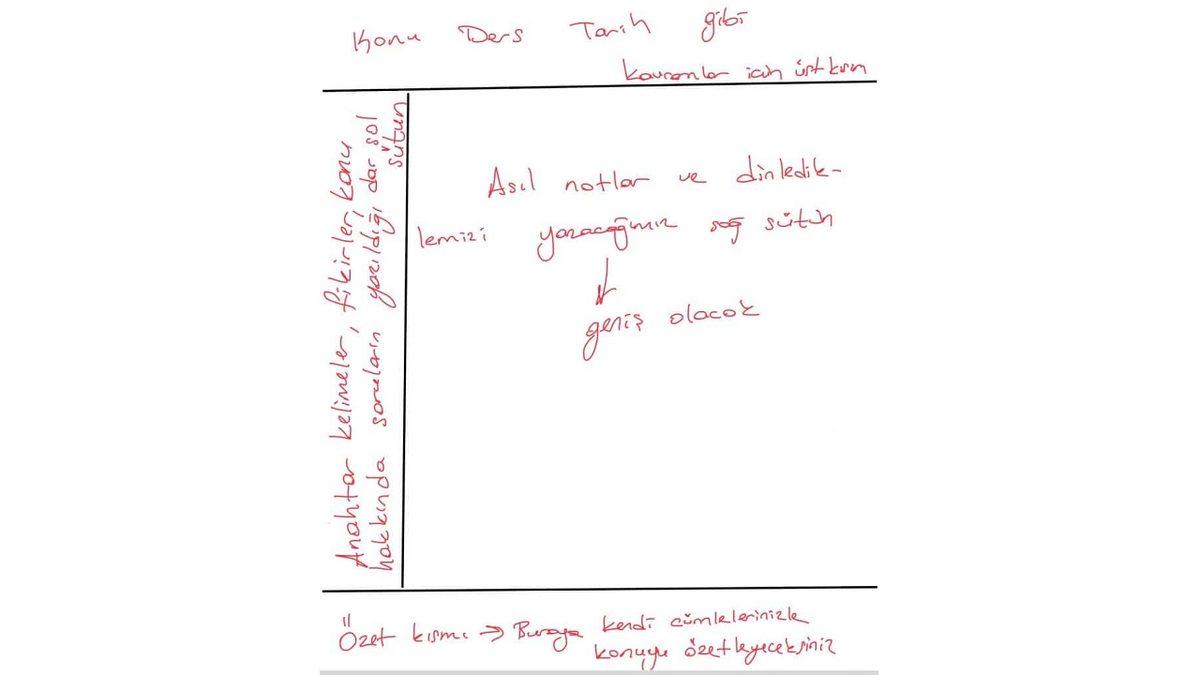 Konu Ders Tarih gibi
kavramlar için üst kısım
Anahtar kelimeler, fikirler, konu
hakkında soruların yazıldığı dar sol
sütun
Asıl notlar ve dinledik-
lemizi yazacağımız sağ sütün
geniş olacak
Özet kısmı → Buraya kendi cümlelerinizle
konuyu özetleyeceksiniz